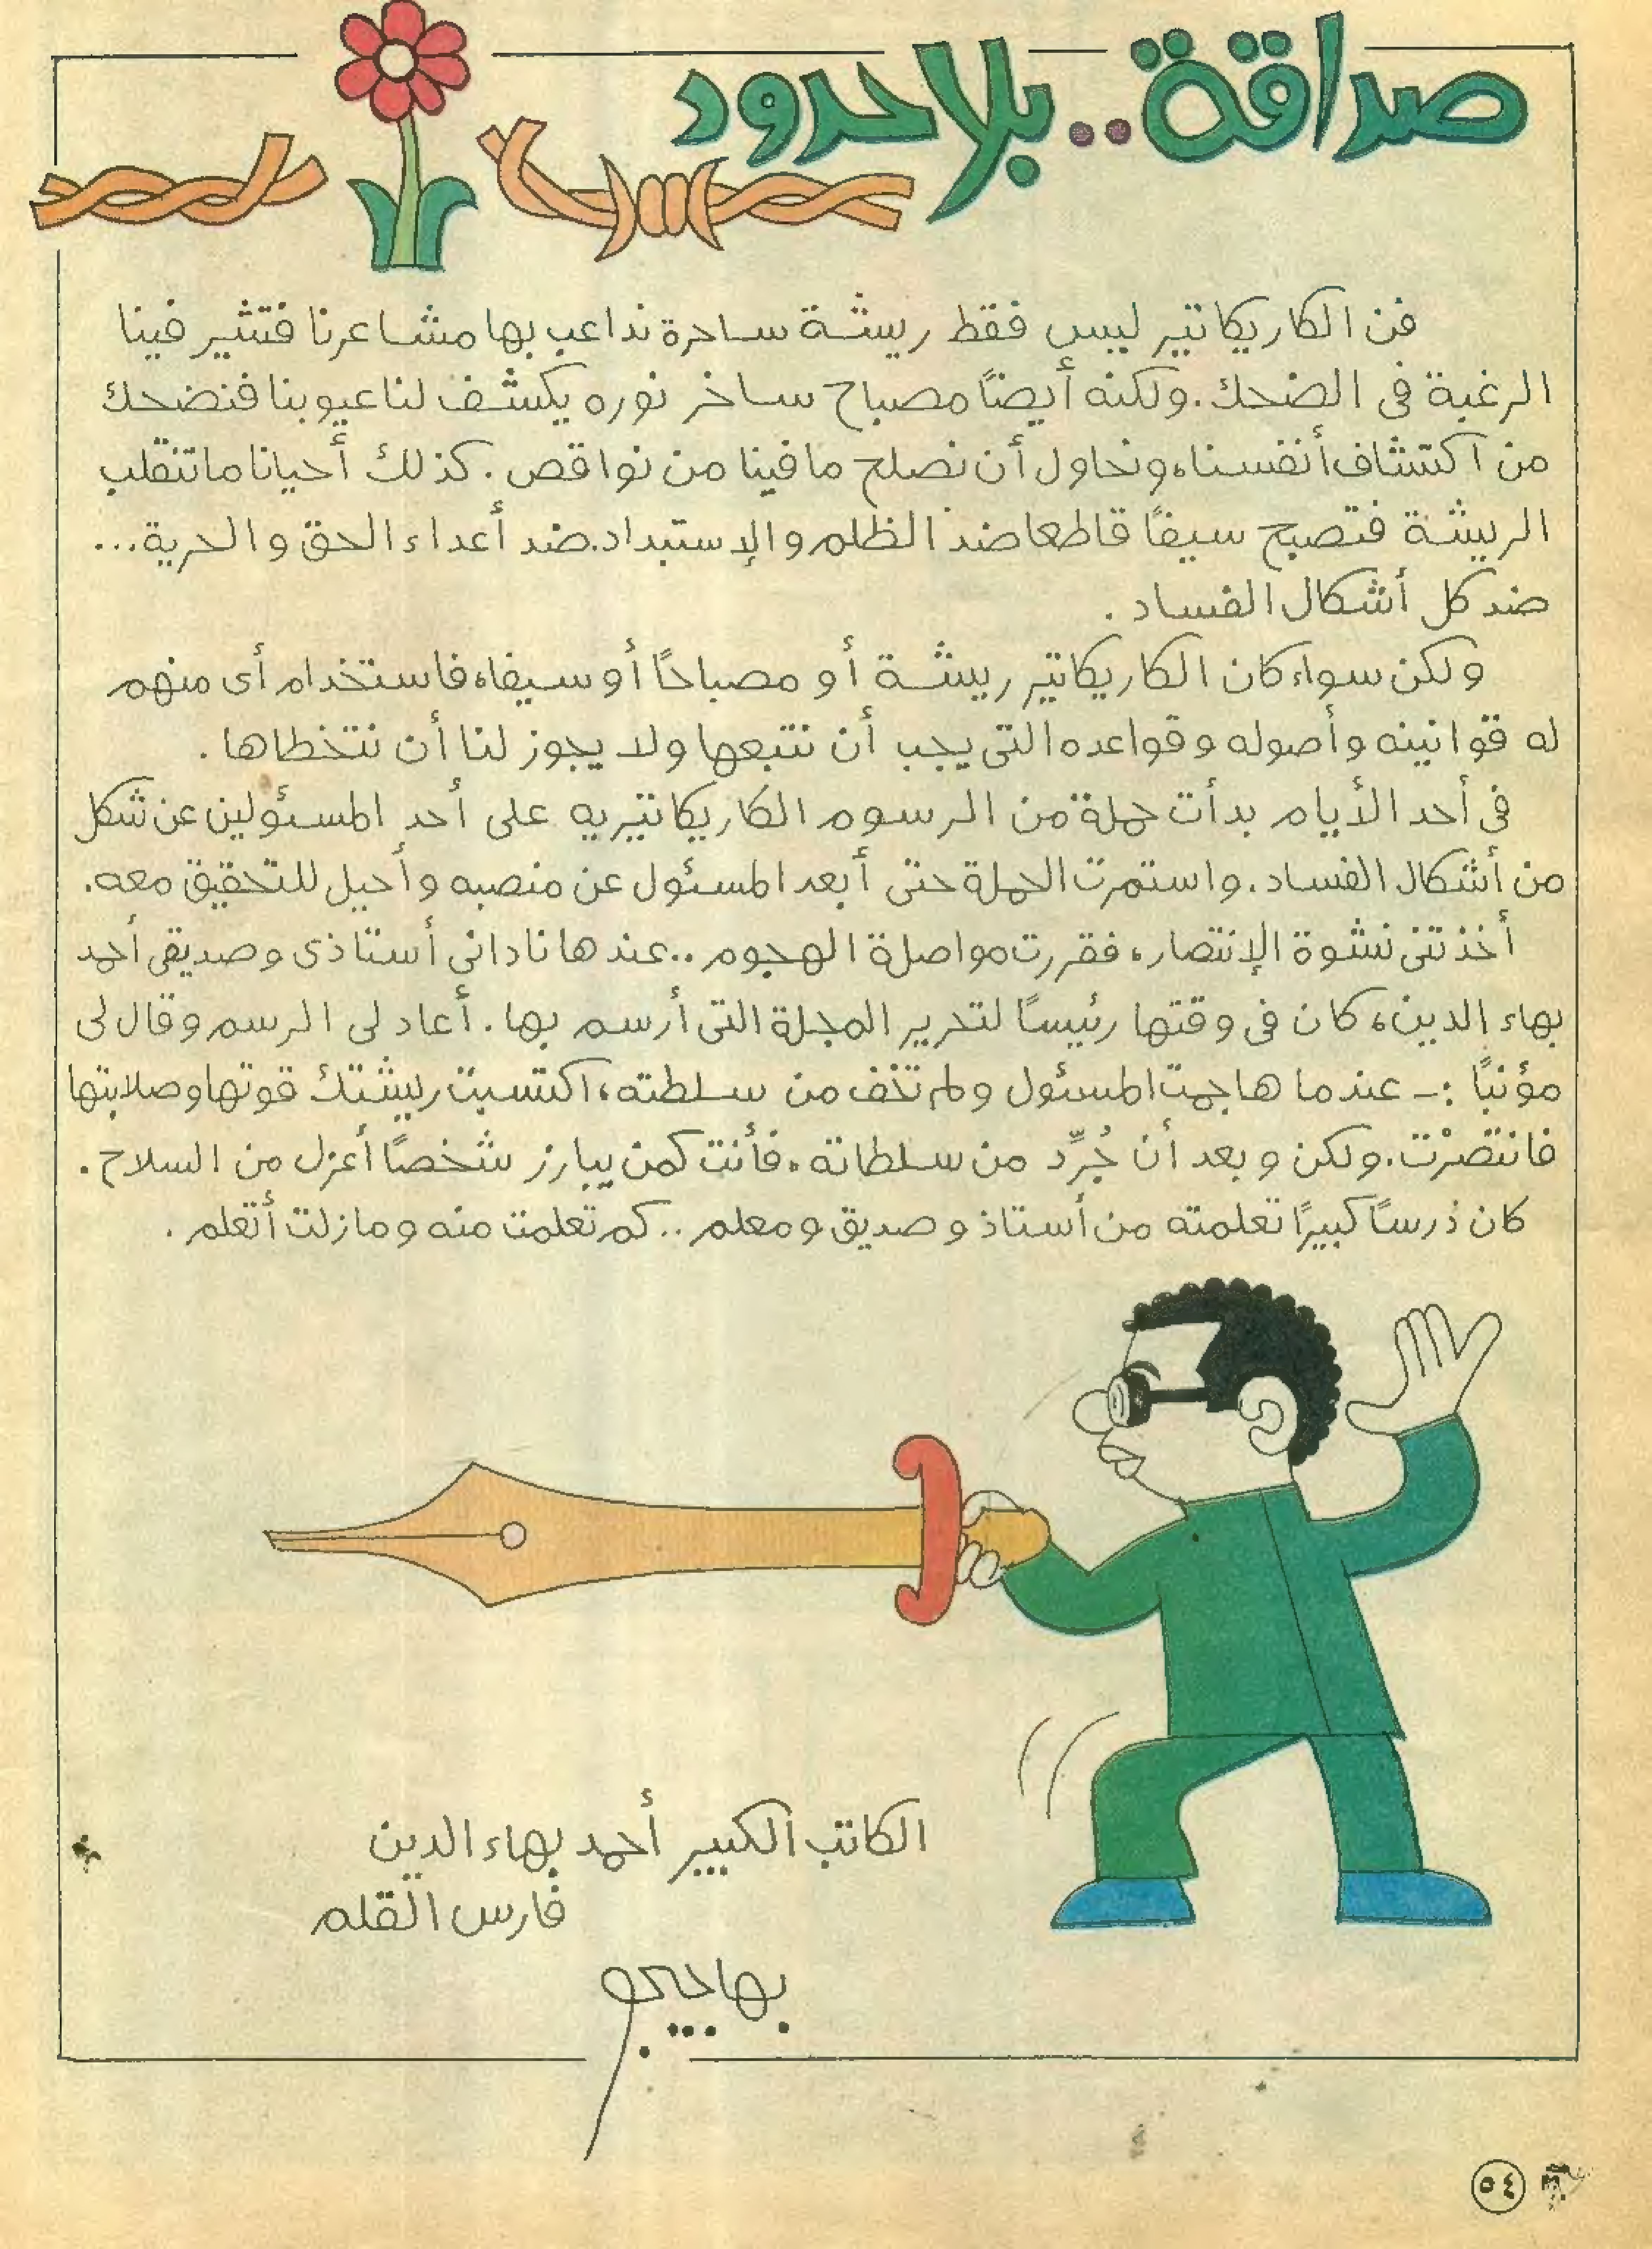 صداقة..بلا حدود
فن الكاريكاتير ليس فقط ريشة ساحرة نداعب بها مشاعرنا فتثير فينا
الرغبة فى الضحك. ولكنه أيضاً مصباح ساخر نوره يكشف لنا عيوبنا فنضحك
من اكتشاف أنفسنا، ونحاول أن نصلح ما فينا من نواقص. كذلك أحيانا ما تنقلب
الريشة فتصبح سيفاً قاطعا ضد الظلم والإستبداد. ضد أعداء الحق والحرية...
ضد كل أشكال الفساد.
ولكن سواء كان الكاريكاتير ريشة أو مصباحاً أو سيفا، فاستخدام أى منهم
له قوانينه وأصوله وقواعده التى يجب أن نتبعها ولا يجوز لنا أن نتخطاها.
فى أحد الأيام بدأت حملة من الرسوم الكاريكاتيريه على أحد المسئولين عن شكل
من أشكال الفساد. واستمرت الحملة حتى أبعد المسئول عن منصبه وأحيل للتحقيق معه.
أخذتنى نشوة الإنتصار، فقررت مواصلة الهجوم.. عندها نادانى أستاذى وصديقى أحمد
بهاء الدين، كان فى وقتها رئيساً لتحرير المجلة التى أرسم بها. أعاد لى الرسم وقال لى
مؤنباً :- عندما هاجمت المسئول ولم تخف من سلطته، اكتسبت ريشتك قوتها وصلابتها
فانتصرْت. ولكن وبعد أن جُرِّد من سلطاته، فأنت كمن يبارز شخصاً أعزل من السلاح.
كان درساً كبيراً تعلمته من أستاذ وصديق ومعلم.. كم تعلمت منه ومازلت أتعلم.
الكاتب الكبير أحمد بهاء الدين
فارس القلم
بهاجيجو
٥٤